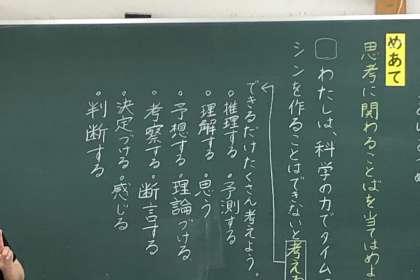 めあて
思考に関わることばを当てはめ
□わたしは、科学の力でタイム
シンを作ることはできないと考え
できるだけたくさん考えよう。
・推理する・予測する
・理解する・思う
・予想する・理論づける
・考察する・断言する
・決定づける・感じる
・判断する